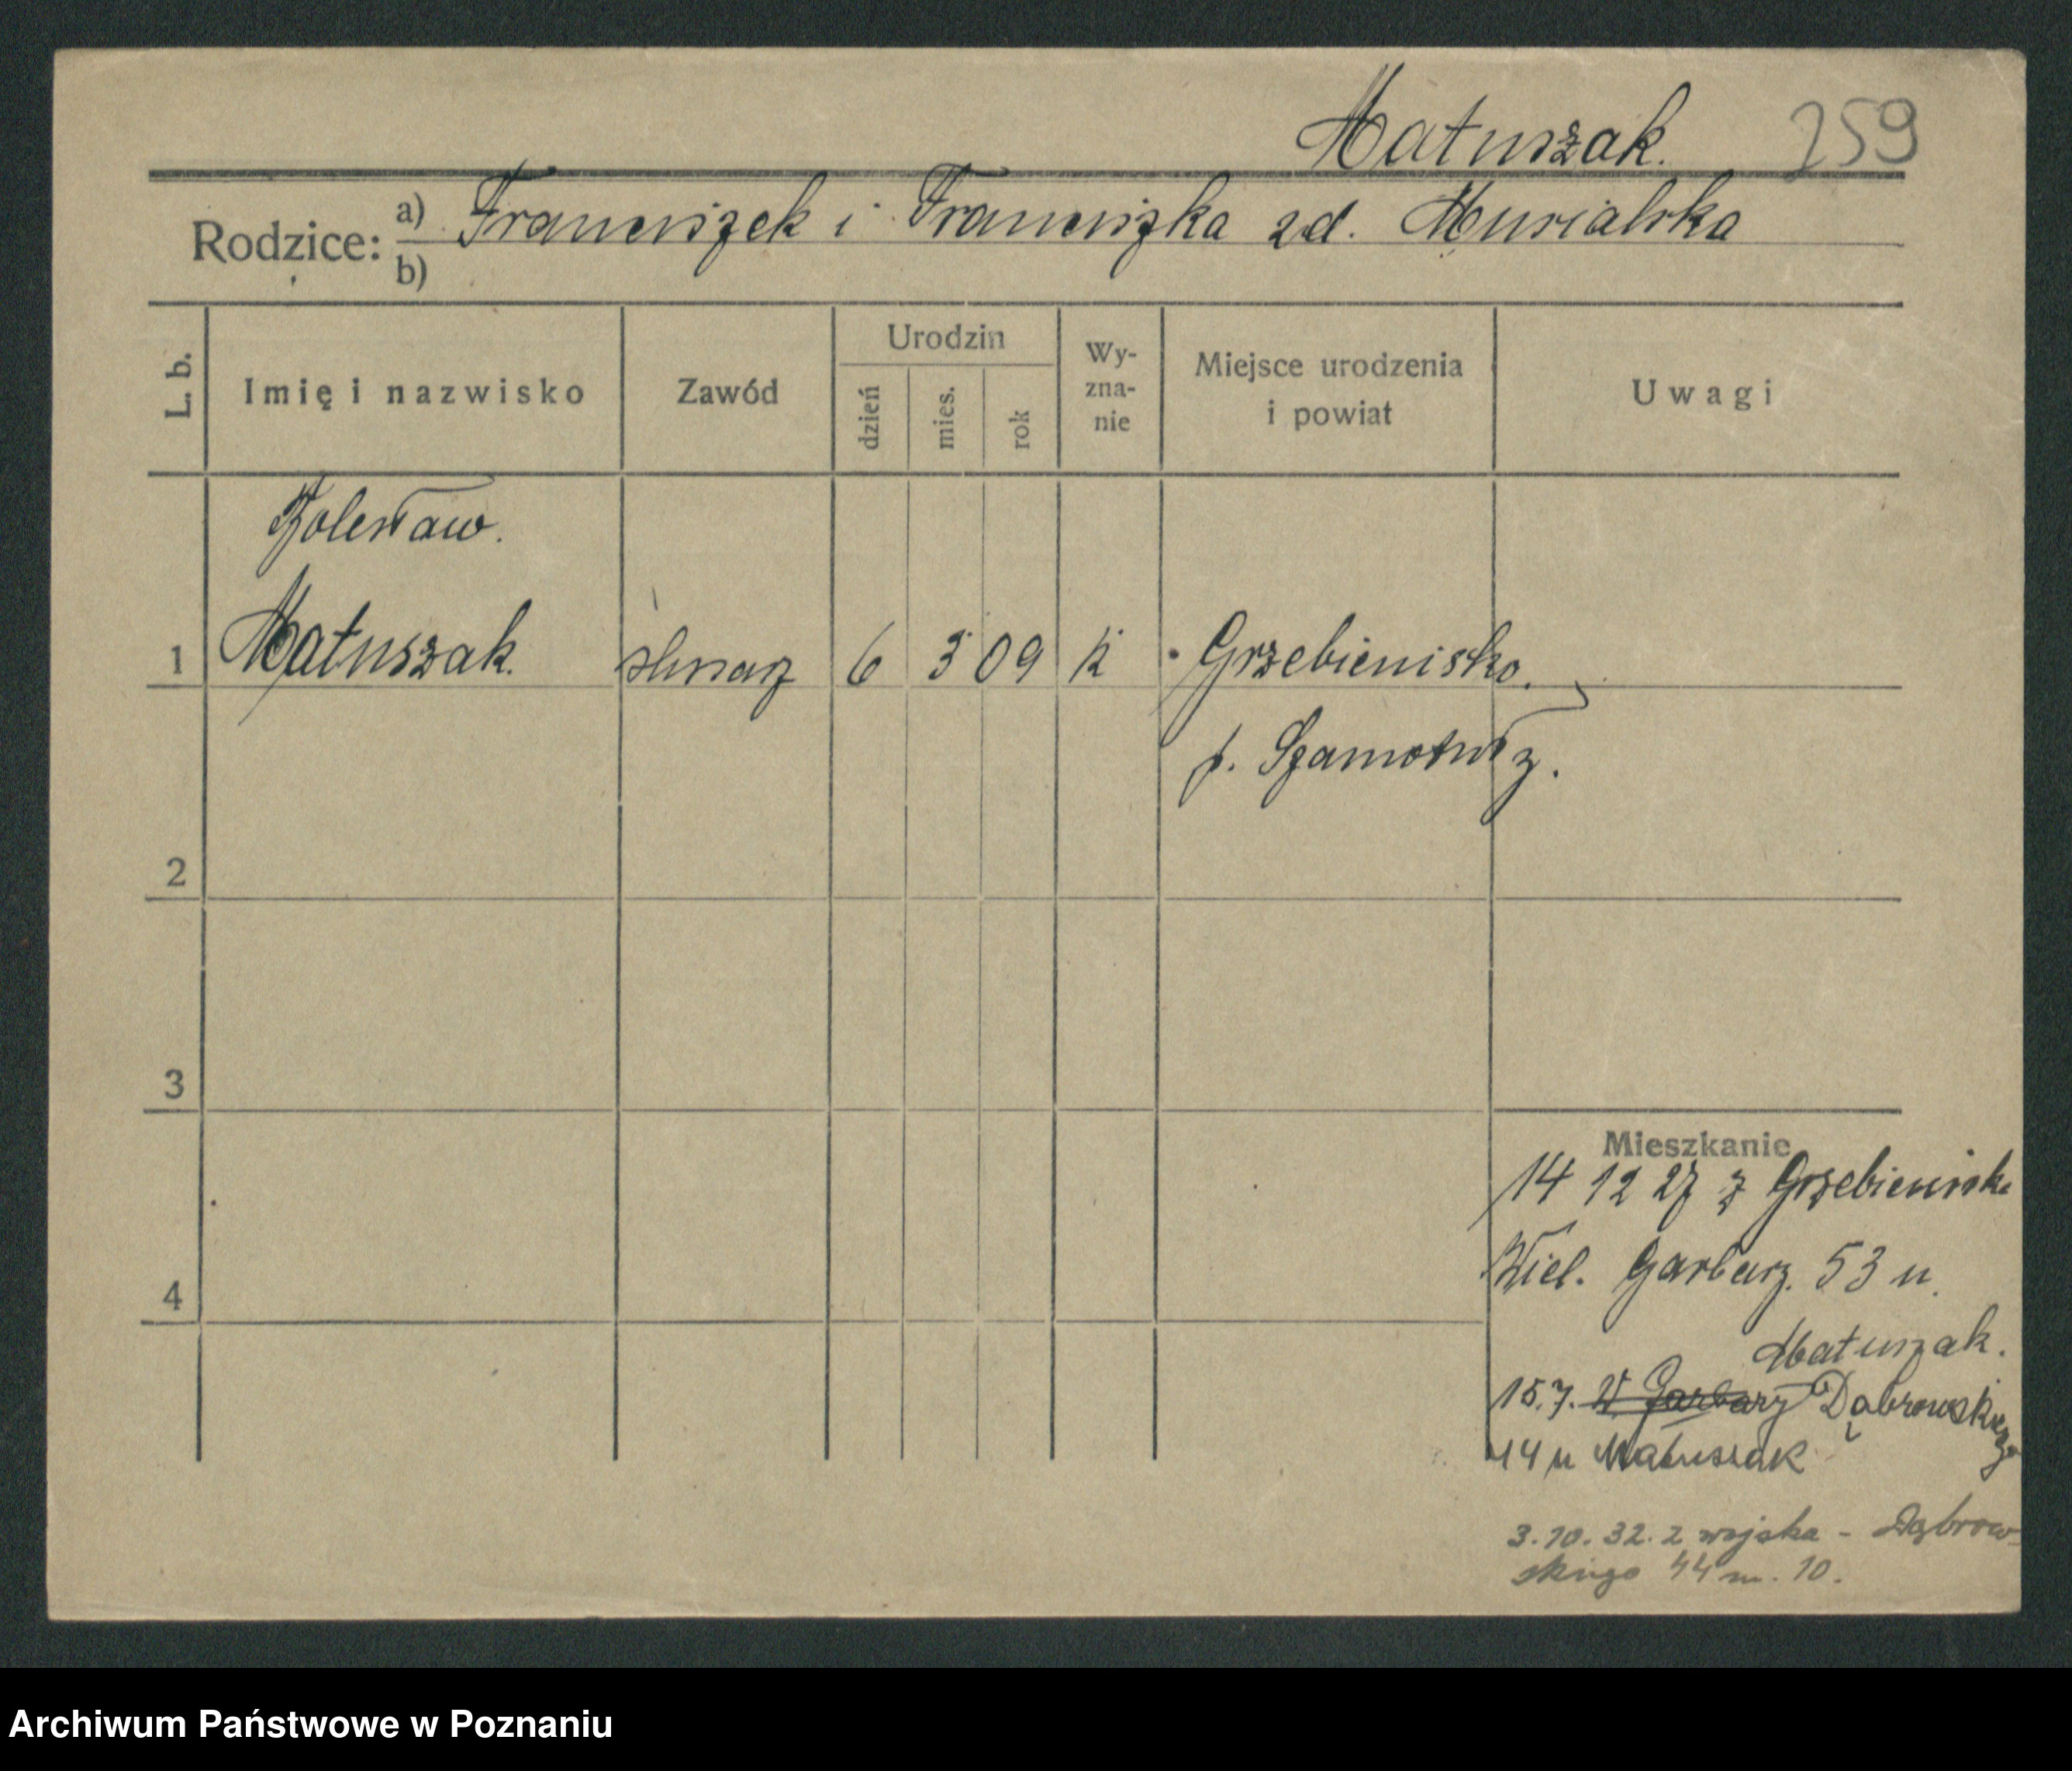 Matuszak. 259
Rodzice: a) Franciszek i Franciszka zd. Musialska
b)
L. b. Imię i nazwisko Zawód Urodzin dzień mies. rok Wy-zna-nie Miejsce urodzenia i powiat Uwagi
Bolesław.
1 Matuszak. ślusarz 6 3 09 k Grzebienisko.
p. Szamotuły.
2
3
4
Mieszkanie
14 12 27 z Grzebienisk
Wiel. Garbary. 53 u.
Matuszak.
15.7. W Garbary Dąbrowskiego
44 u Matuszak
3.10.32. z wojska - Dąbrow-
skiego 44 m. 10.
Archiwum Państwowe w Poznaniu